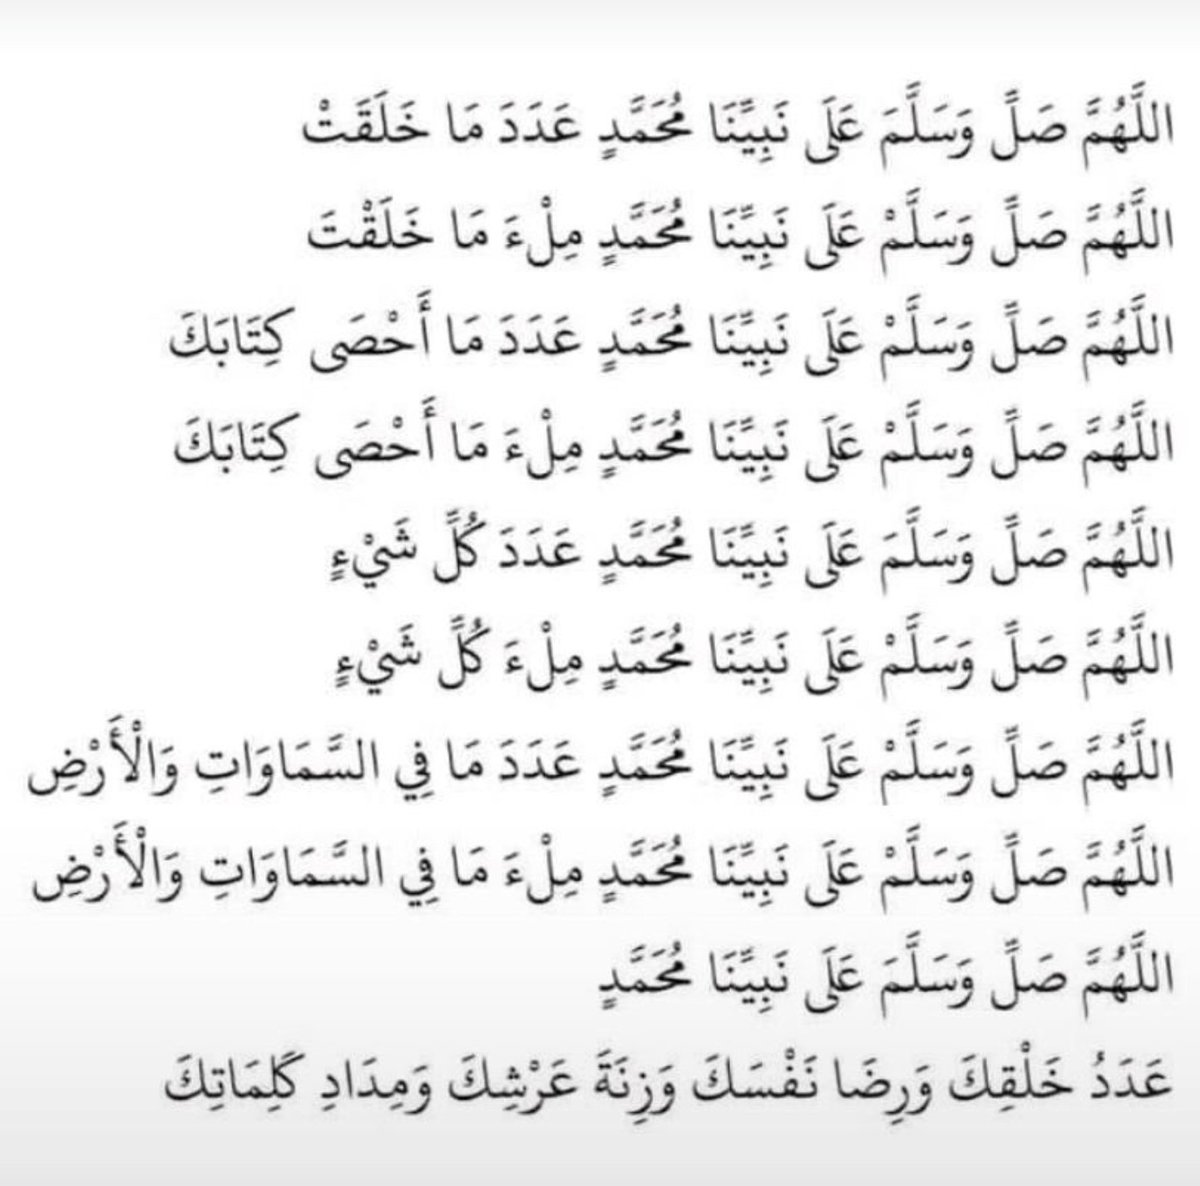 اللَّهُمَّ صَلِّ وَسَلَّمَ عَلَى نَبِيِّنَا مُحَمَّدٍ عَدَدَ مَا خَلَقَتْ
اللَّهُمَّ صَلِّ وَسَلَّمْ عَلَى نَبِيِّنَا مُحَمَّدٍ مِلْءَ مَا خَلَقْتَ
اللَّهُمَّ صَلِّ وَسَلَّمْ عَلَى نَبِيِّنَا مُحَمَّدٍ عَدَدَ مَا أَحْصَى كِتَابَكَ
اللَّهُمَّ صَلِّ وَسَلَّمْ عَلَى نَبِيِّنَا مُحَمَّدٍ مِلْءَ مَا أَحْصَى كِتَابَكَ
اللَّهُمَّ صَلِّ وَسَلَّمَ عَلَى نَبِيِّنَا مُحَمَّدٍ عَدَدَ كُلِّ شَيْءٍ
اللَّهُمَّ صَلِّ وَسَلَّمْ عَلَى نَبِيِّنَا مُحَمَّدٍ مِلْءَ كُلِّ شَيْءٍ
اللَّهُمَّ صَلِّ وَسَلَّمْ عَلَى نَبِيِّنَا مُحَمَّدٍ عَدَدَ مَا فِي السَّمَاوَاتِ وَالْأَرْضِ
اللَّهُمَّ صَلِّ وَسَلَّمْ عَلَى نَبِيِّنَا مُحَمَّدٍ مِلْءَ مَا فِي السَّمَاوَاتِ وَالْأَرْضِ
اللَّهُمَّ صَلِّ وَسَلَّمَ عَلَى نَبِيِّنَا مُحَمَّدٍ
عَدَدُ خَلْقِكَ وَرِضَا نَفْسَكَ وَزِنَةَ عَرْشِكَ وَمِدَادِ كَلِمَاتِكَ